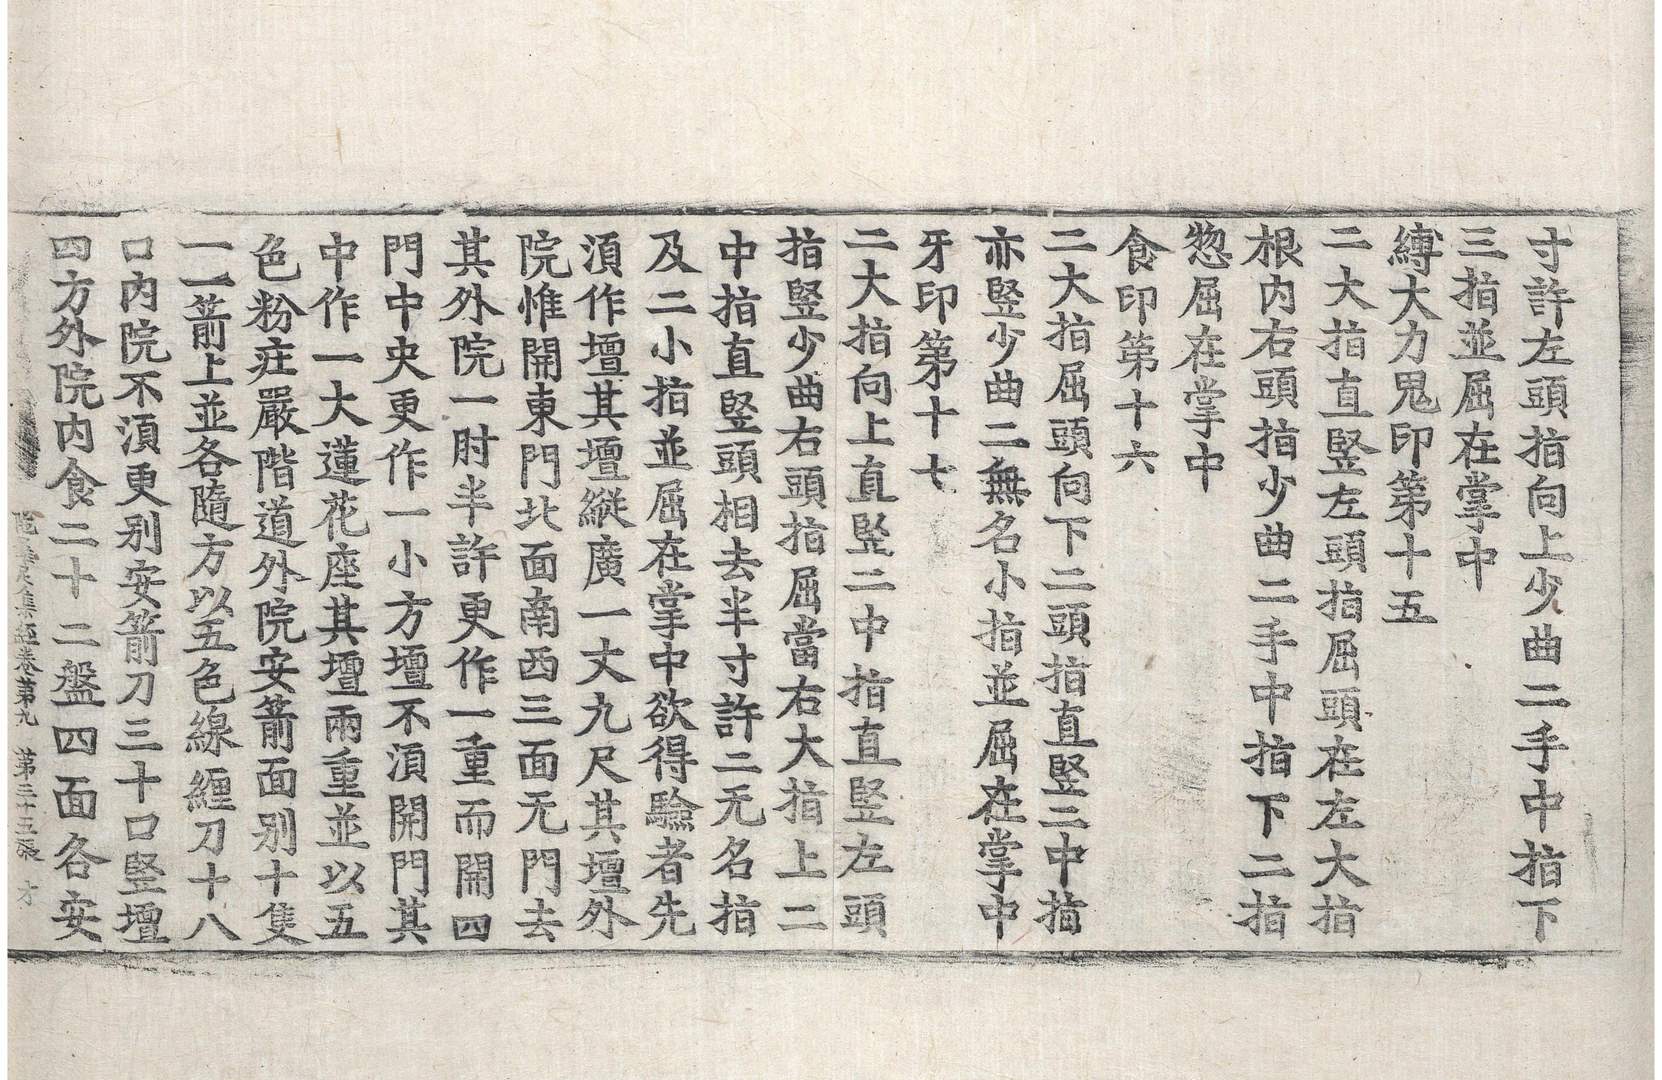 寸許左頭指向上少曲二手中指下
三指並屈在掌中
縛大力鬼印第十五
二大指直竪左頭指屈頭在左大指
根内右頭指少曲二手中指下二指
惣屈在掌中
食印第十六
二大指屈頭向下二頭指直竪三中指
亦竪少曲二無名小指並屈在掌中
牙印第十七
二大指向上直竪二中指直竪左頭
指竪少曲右頭指屈當右大指上二
中指直竪頭相去半寸許二无名指
及二小指並屈在掌中欲得驗者先
湏作壇其壇縱廣一丈九尺其壇外
院惟開東門北面南西三面无門去
其外院一肘半許更作一重而開四
門中央更作一小方壇不湏開門其
中作一大蓮花座其壇兩重並以五
色粉庄嚴階道外院安箭面别十隻
一一箭上並各隨方以五色線纏刀十八
口内院不湏更别安箭刀三十口竪壇
四方外院内食二十二盤四面各安
陁羅尼集經卷第九　第三十五張　才